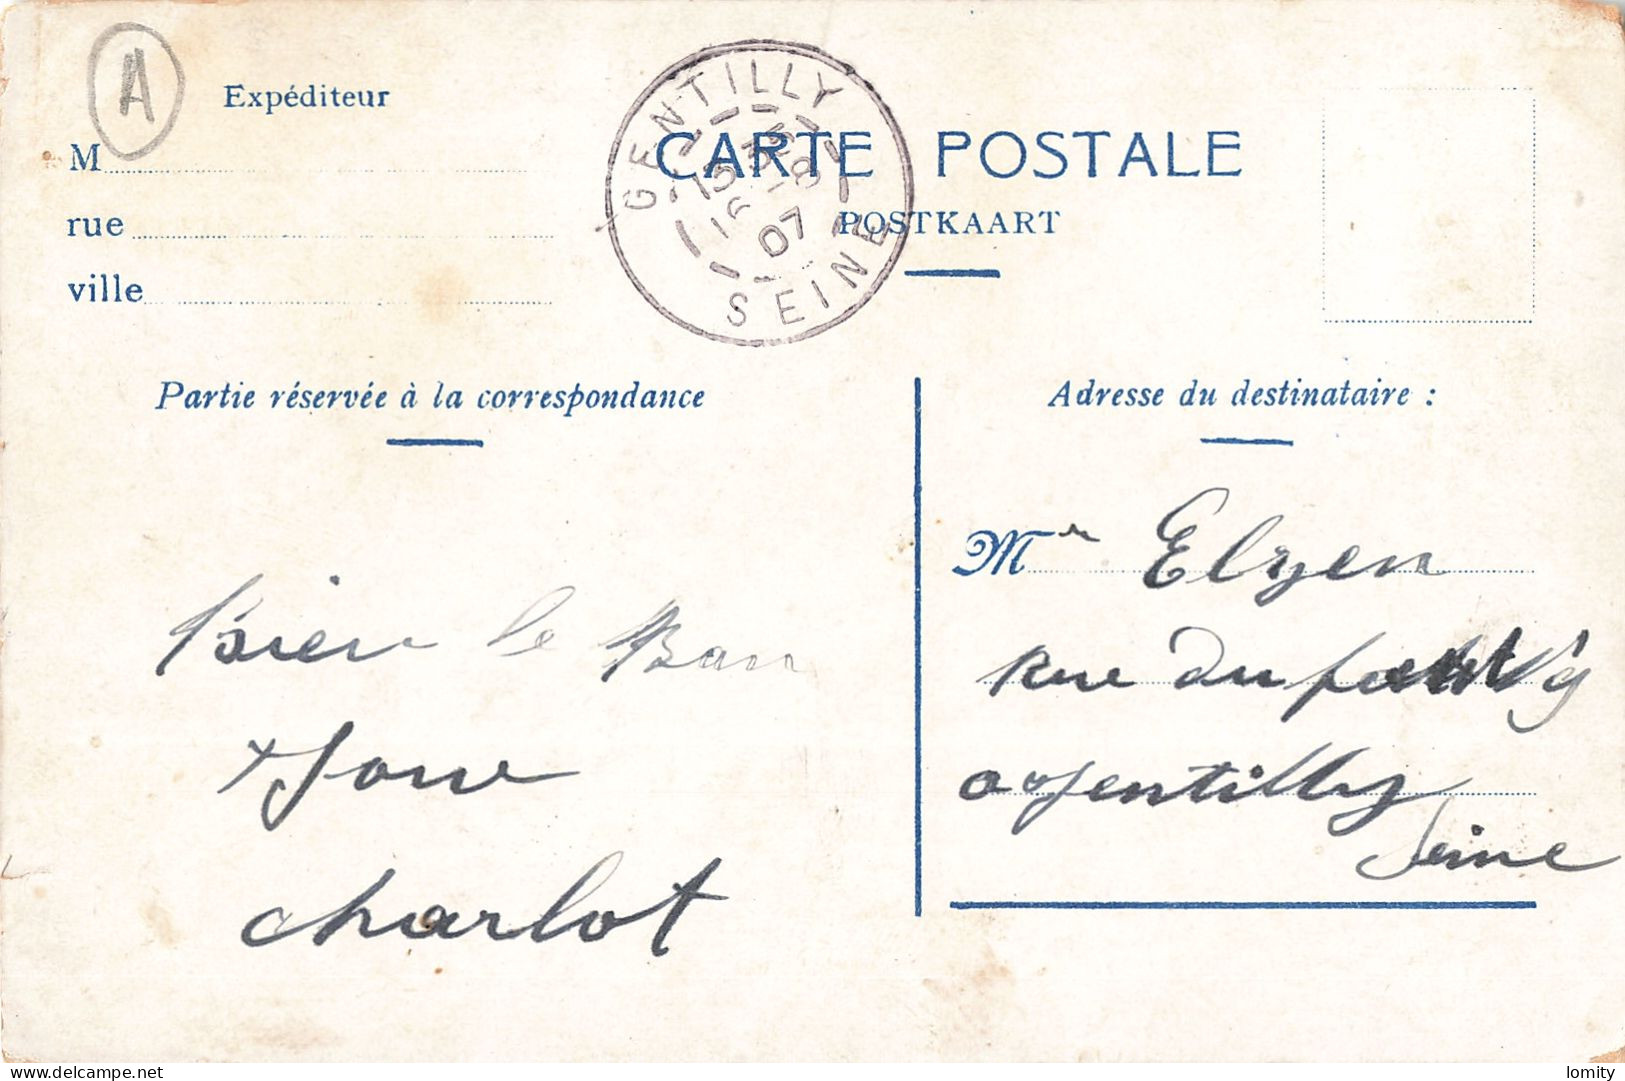 A
Expéditeur
M
rue
ville
GENTILLY
15 30
16 -8
07
SEINE
CARTE POSTALE
POSTKAART
Partie réservée à la correspondance
Adresse du destinataire :
bien le Bon
Jour
charlot
Mr Elzen
Rue du
a gentilly
Seine
delcampe.net
lomity